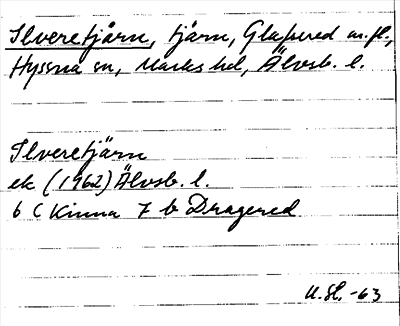 Ilveretjärn, tjärn, Glapered m.fl.,
Hyssna sn, Marks hd, Älvsb. l.
Ilveretjärn
ek (1962) Älvsb. l.
6 C Kinna 7 b Dragered
U.Sl. -63